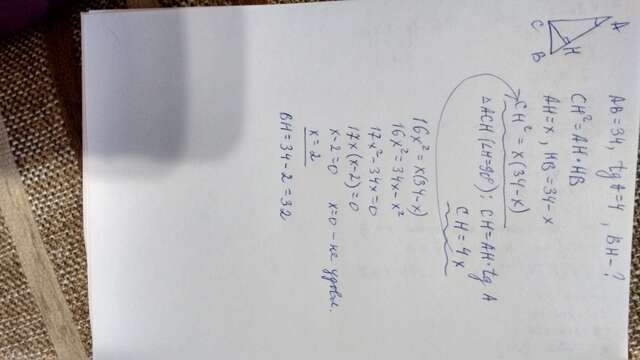 A
C
H
B
AB=34, tg A=4, BH-?
CH²=AH·HB
AH=x, HB=34-x
CH²=x(34-x)
△ACH(∠H=90°): CH=AH·tg A
CH=4x
16x²=x(34-x)
16x²=34x-x²
17x²-34x=0
17x(x-2)=0
x-2=0 x=0-не удовл.
x=2
BH=34-2=32